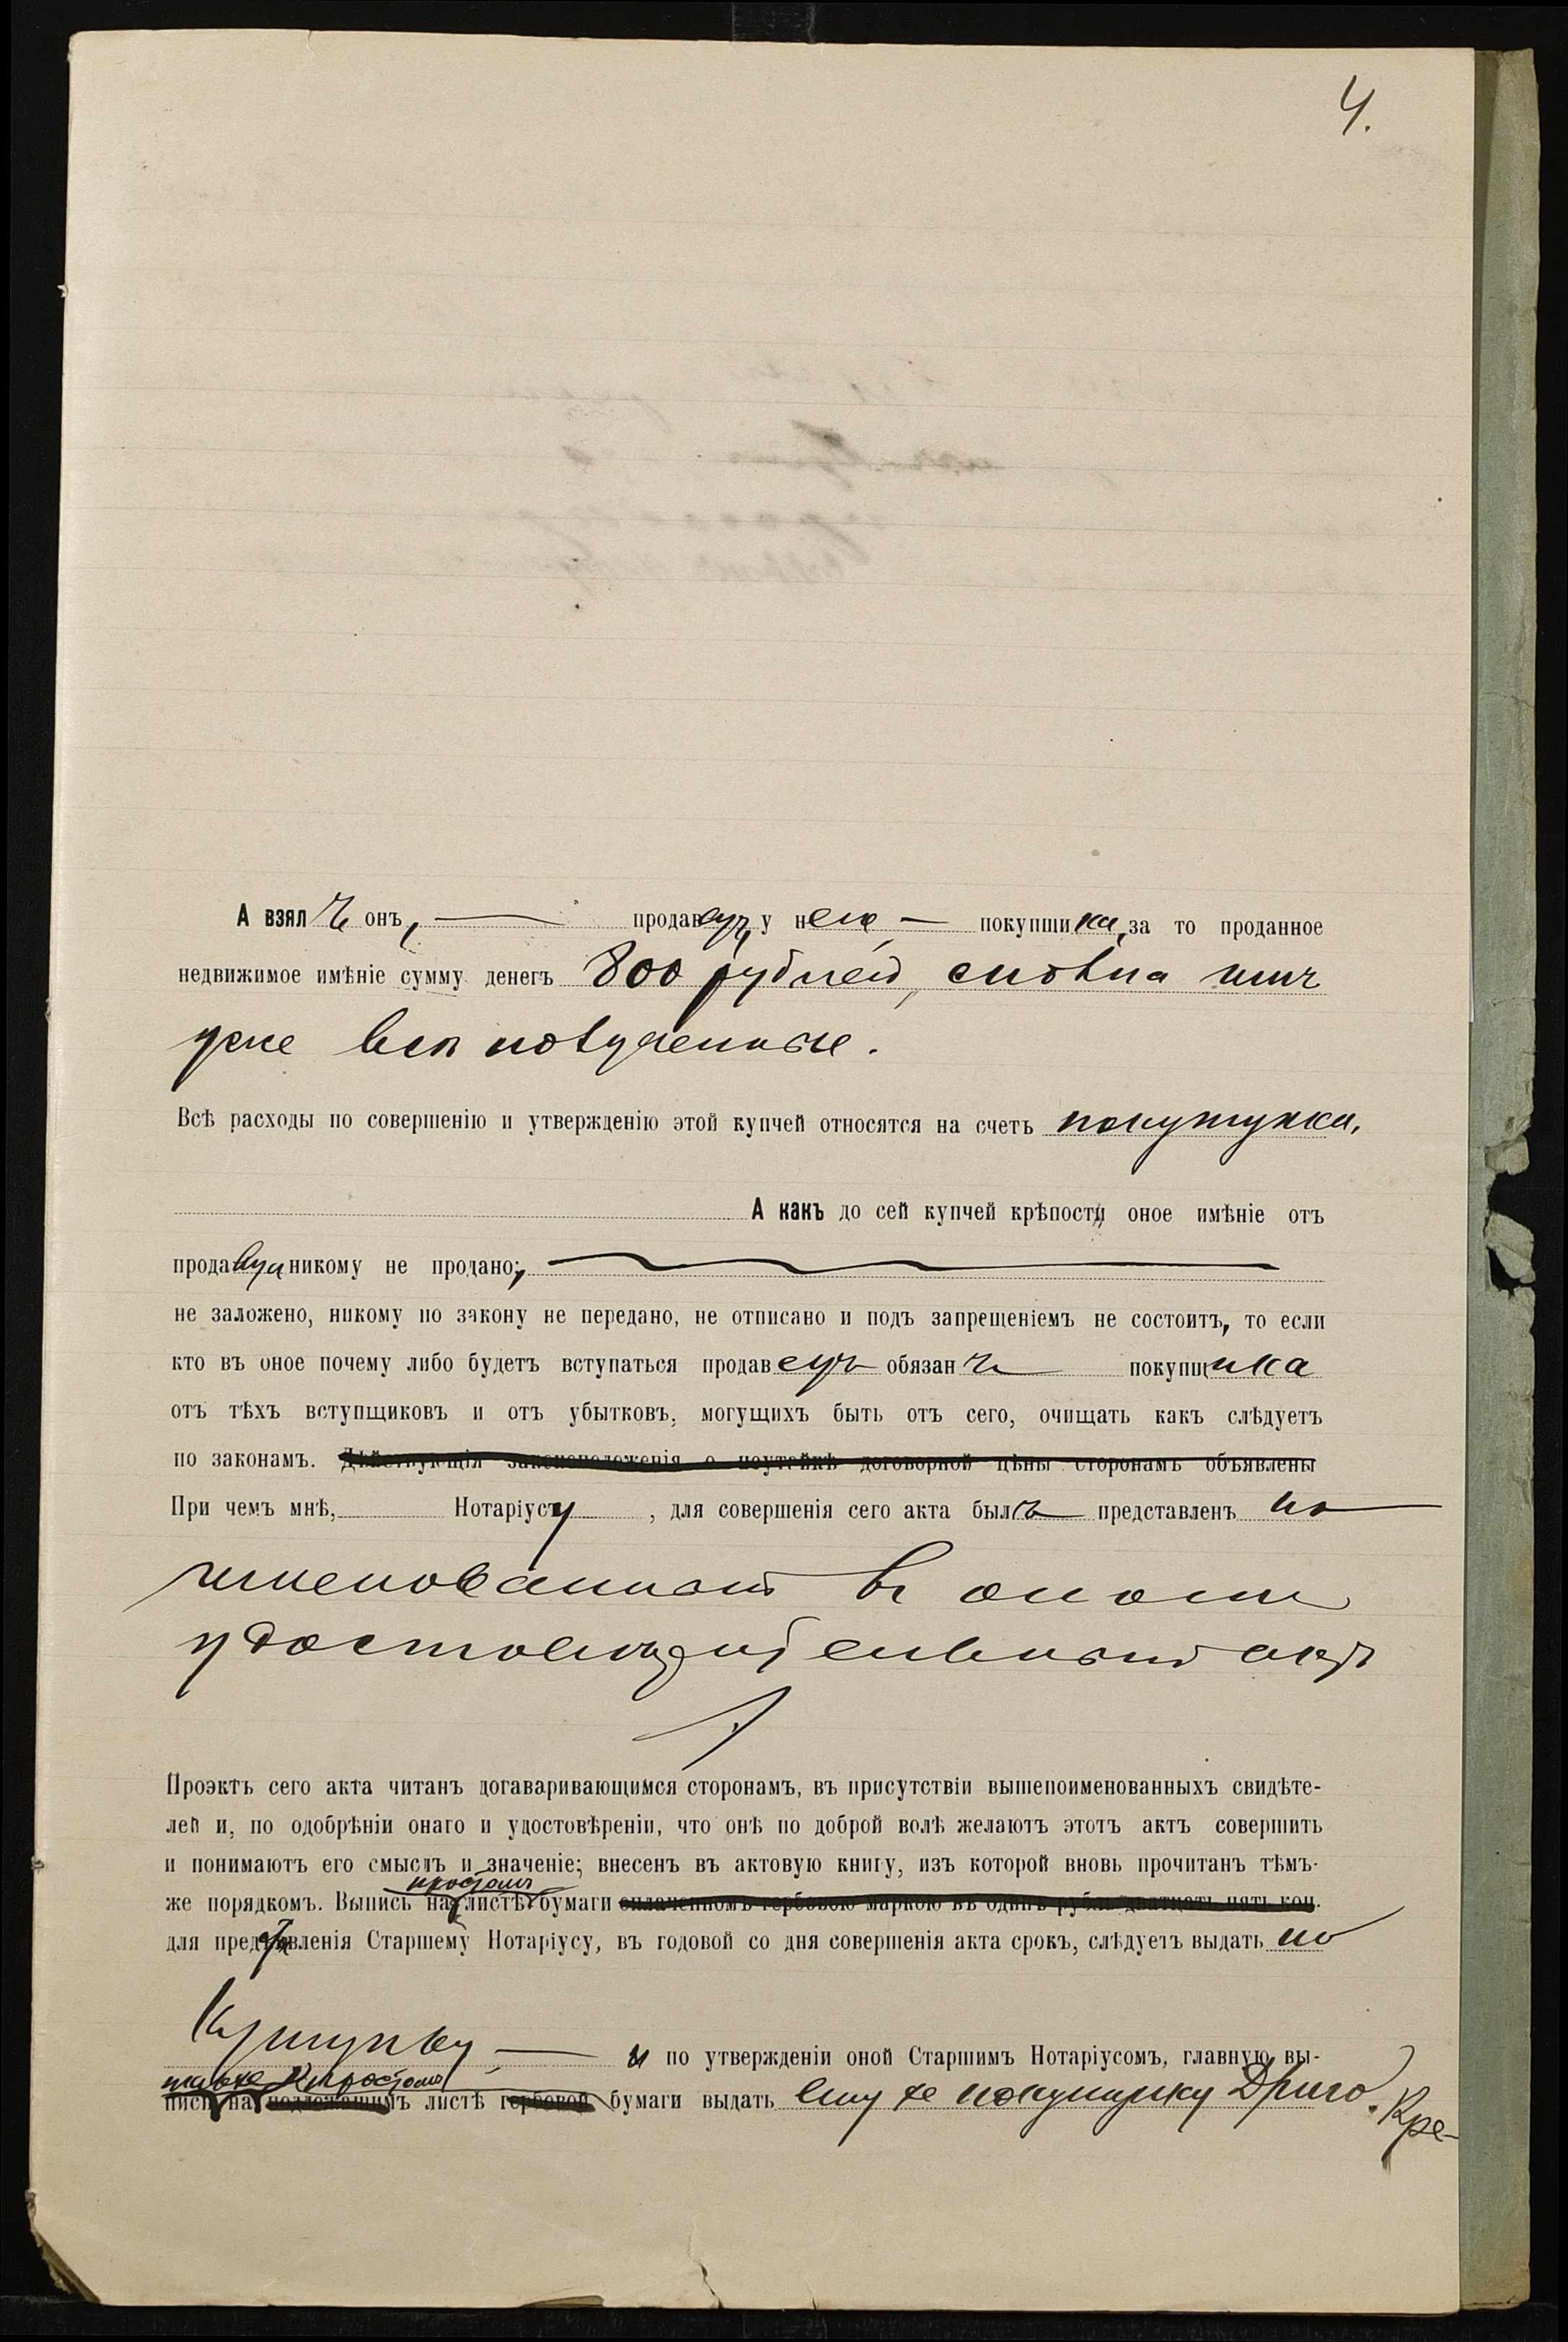 4.
А взялъ онъ, продавецъ, у него покупщика, за то проданное
недвижимое имѣніе сумму денегъ 800 рублей, сполна имъ
уже всѣ полученные.
Всѣ расходы по совершенію и утвержденію этой купчей относятся на счетъ покупщика.
А какъ до сей купчей крѣпости оное имѣніе отъ
продавца никому не продано;
не заложено, никому по закону не передано, не отписано и подъ запрещеніемъ не состоитъ, то если
кто въ оное почему либо будетъ вступаться продавецъ обязанъ покупщика
отъ тѣхъ вступщиковъ и отъ убытковъ, могущихъ быть отъ сего, очищать какъ слѣдуетъ
по законамъ. Дѣйствующія законоположенія о неутайкѣ договорной цѣны сторонамъ объявлены
При чемъ мнѣ, Нотаріусу, для совершенія сего акта былъ представленъ по
именованный въ ономъ
удостовѣрительный актъ
Проэктъ сего акта читанъ договаривающимся сторонамъ, въ присутствіи вышепоименованныхъ свидѣте-
лей и, по одобрѣніи онаго и удостовѣреніи, что онѣ по доброй волѣ желаютъ этотъ актъ совершить
и понимаютъ его смыслъ и значеніе; внесенъ въ актовую книгу, изъ которой вновь прочитанъ тѣмъ-
простомъ
же порядкомъ. Выпись на листѣ бумаги оплаченномъ гербовою маркою въ одинъ рубль двадцать пять коп.
для представленія Старшему Нотаріусу, въ годовой со дня совершенія акта срокъ, слѣдуетъ выдать по
купщику и по утвержденіи оной Старшимъ Нотаріусомъ, главную вы-
также простомъ
пись на подлежащимъ листѣ гербовой бумаги выдать ему же покупщику Дриго. Кре-